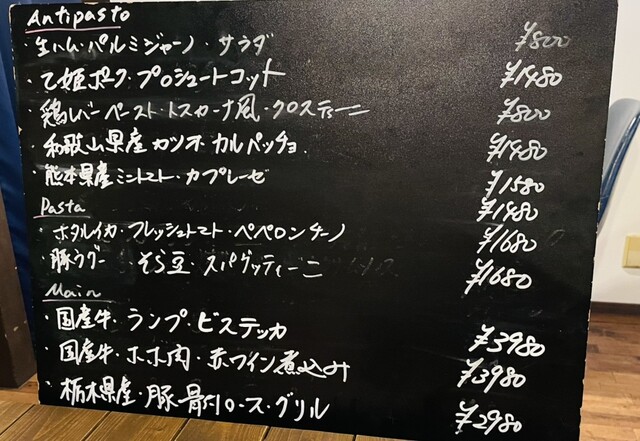 Antipasto
・生ハム・パルミジャーノ・サラダ ¥800
・乙姫ポーク・プロシュートコット ¥1480
・鶏レバーペースト・トスカーナ風・クロスティーニ ¥800
・和歌山県産カツオ・カルパッチョ ¥1480
・熊本県産ミニトマト・カプレーゼ ¥1580
Pasta ¥1480
・ホタルイカ・フレッシュトマト・ペペロンチーノ ¥1680
・豚ラグー そら豆・スパゲッティーニ ¥1680
Main
・国産牛・ランプ・ビステッカ ¥3980
・国産牛・ホホ肉・赤ワイン煮込み ¥3980
・栃木県産・豚骨付ロース・グリル ¥2980